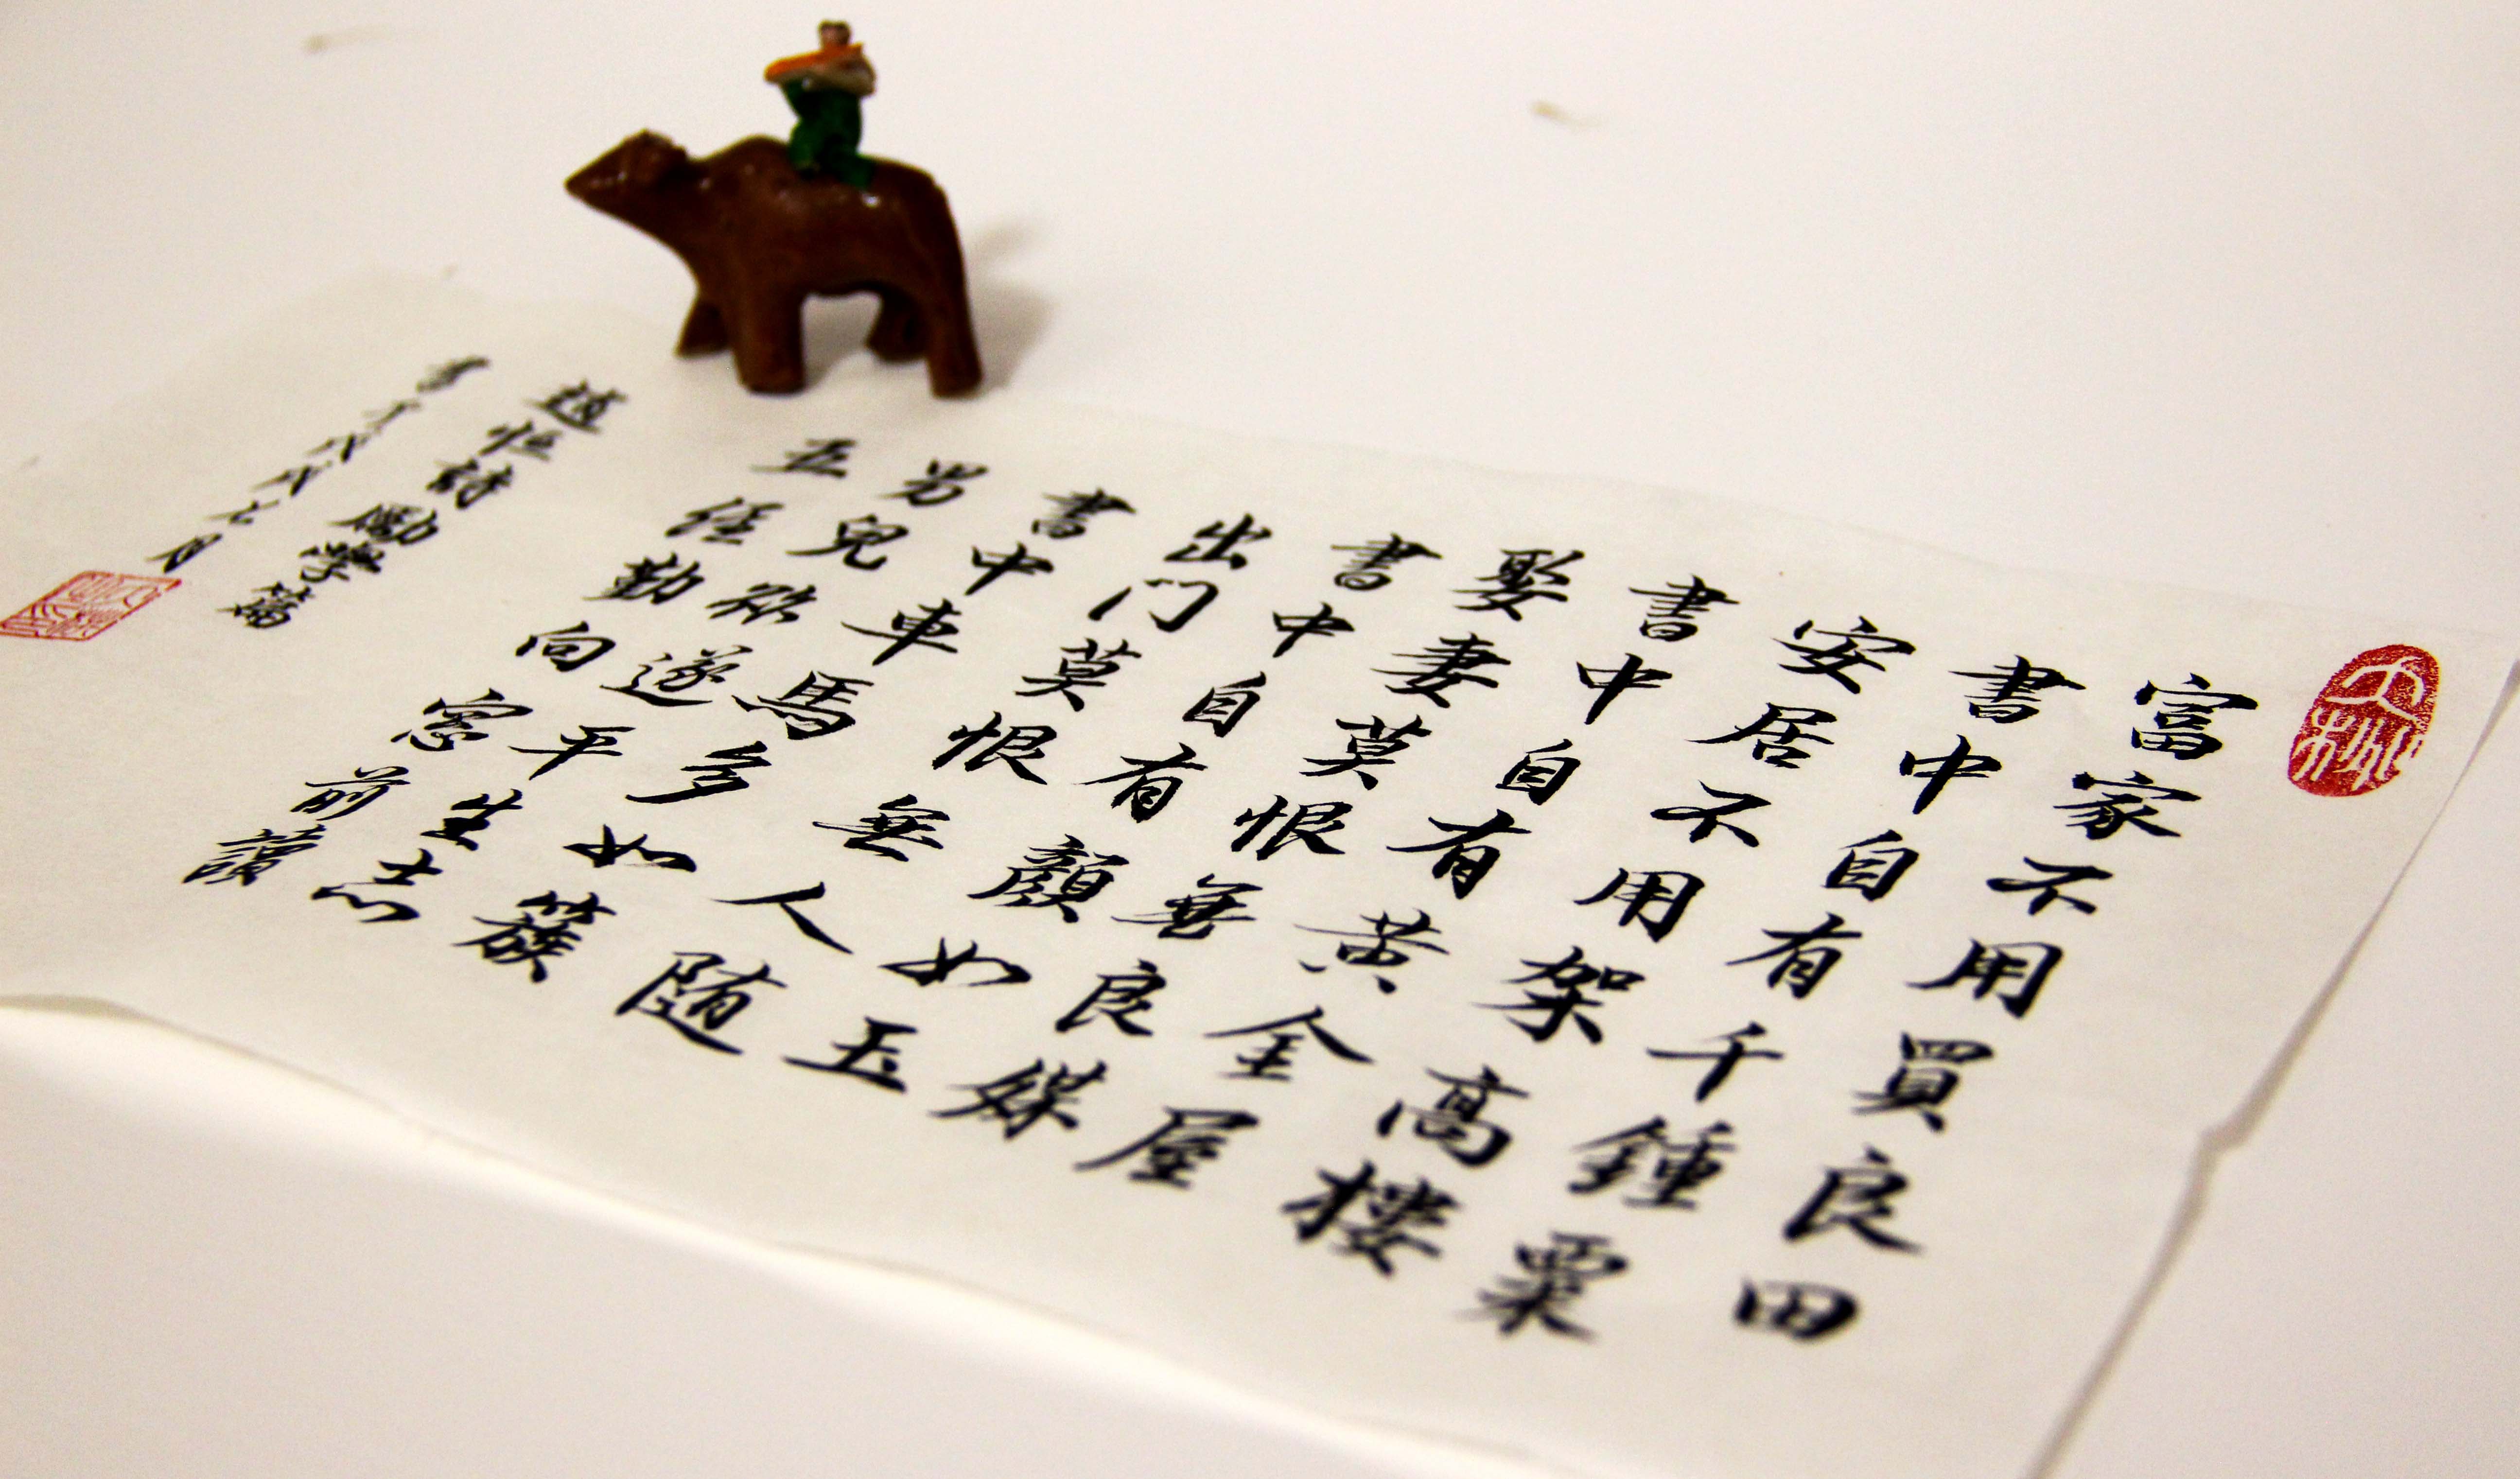 富家不用買良田
書中自有千鍾粟
安居不用架高樓
書中自有黄金屋
娶妻莫恨無良媒
書中自有顏如玉
出門莫恨無人随
書中車馬多如簇
男兒欲遂平生志
五經勤向窓前讀
趙恒詩 勵學篇
書于戊戌七月